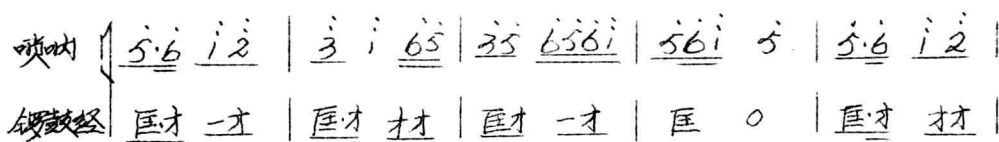 唢呐 5·6 i 2 | 3 i 65 | 35 656i | 56i 5 | 5·6 i 2 |
锣鼓经 匡·才 一才 | 匡·才 才才 | 匡才 一才 | 匡 0 | 匡·才 才才 |